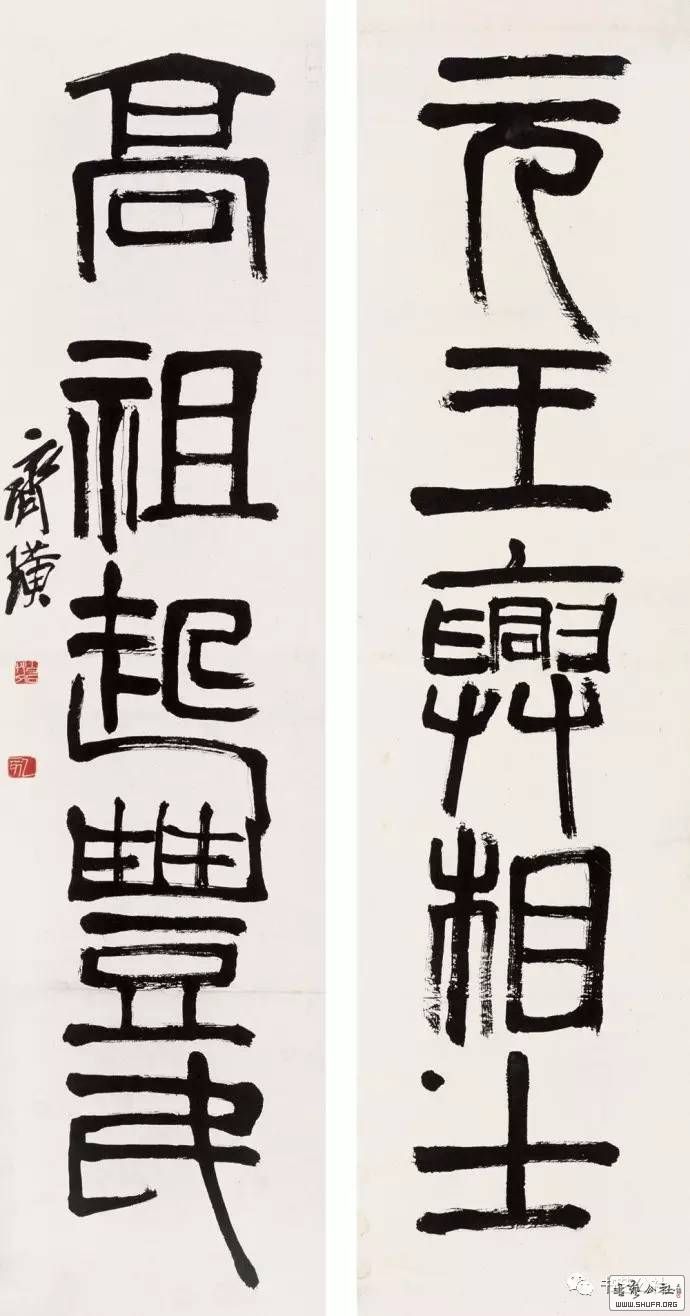 元王興相土
高祖起豐民
齊璜
书艺公社
WWW.SHUFA.ORG